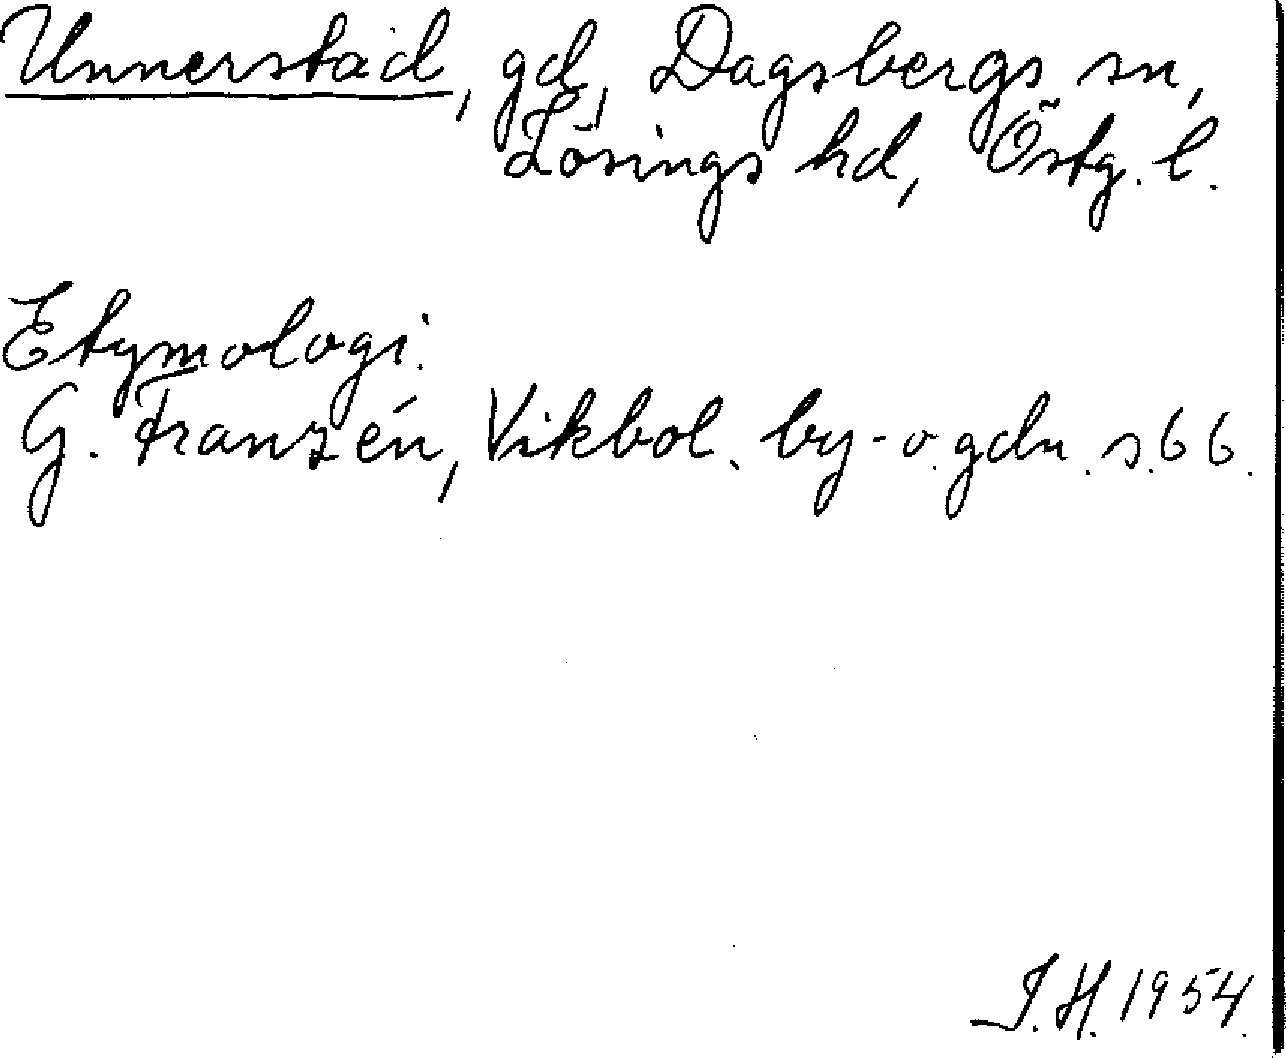 Unnerstad, gd, Dagsbergs sn,
Lösings hd, Östg. l.
Etymologi.
G. Franzén, Vikbol. by- o. gdn. s. 66.
J.H. 1954.